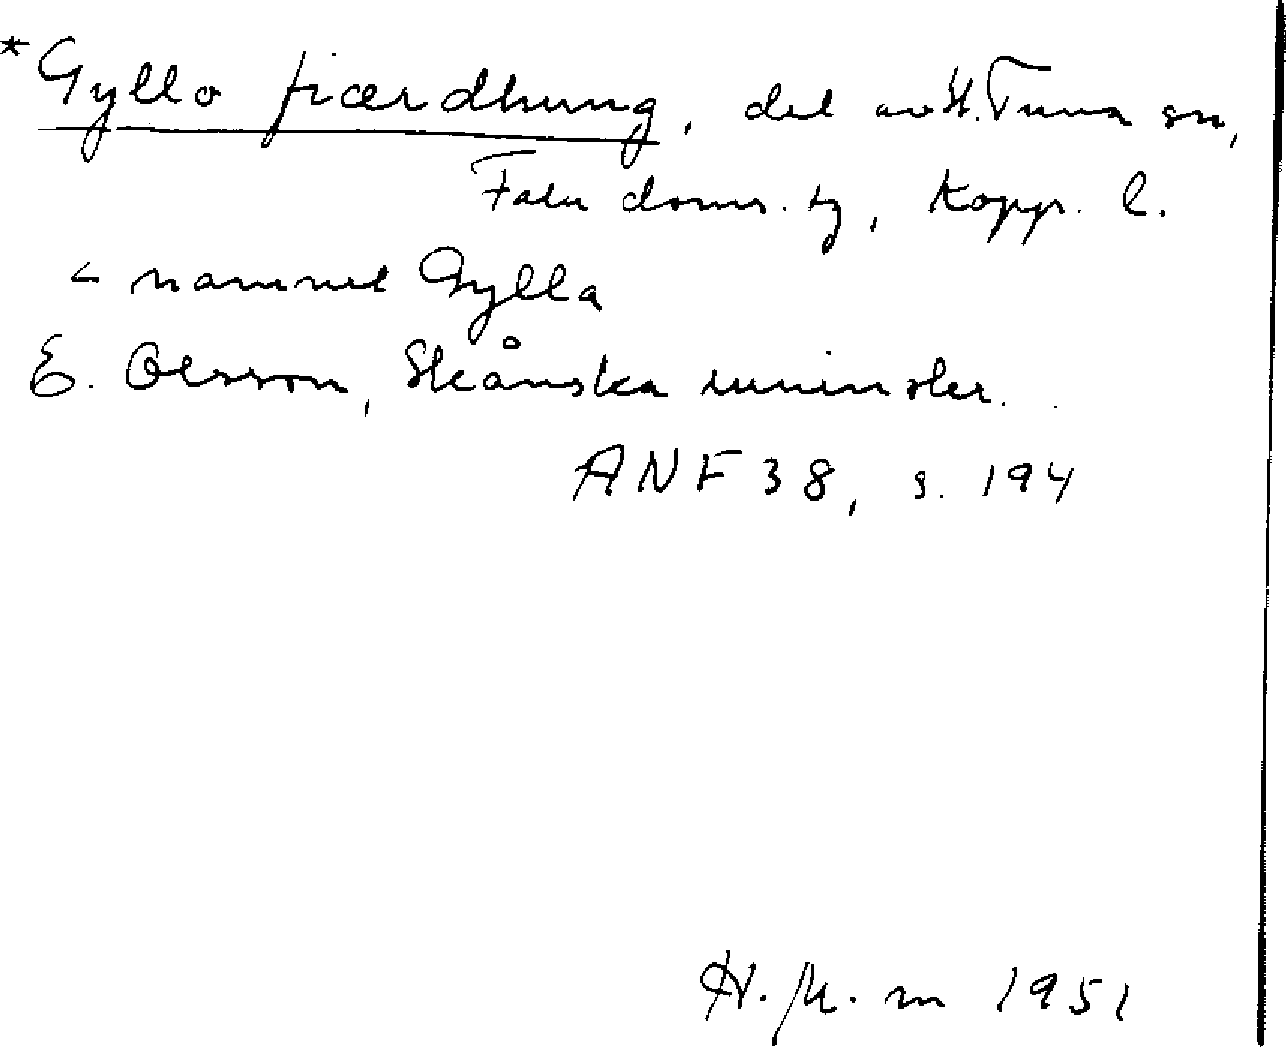 *Gyllo fiærdhung, del av St. Tuna sn,
Falu doms. tg, Kopp. l.
< namnet Gylla
E. Olsson, Skånska runinskr.
ANF 38, s. 194
1951